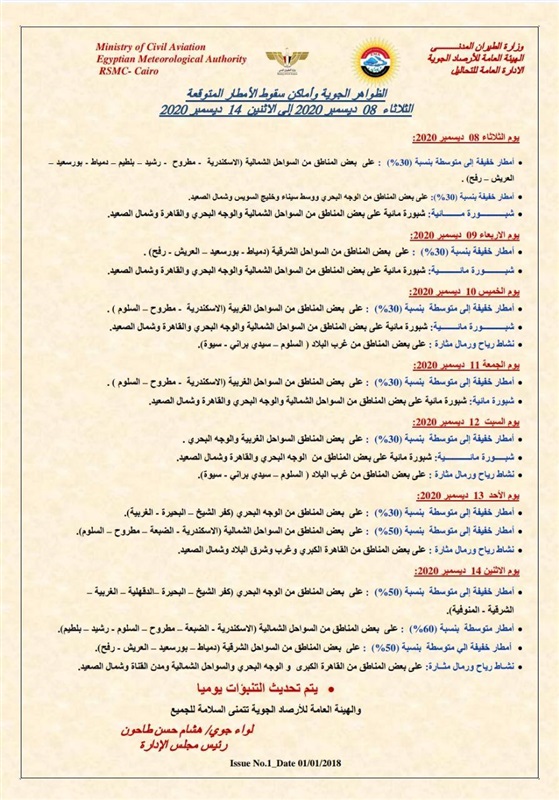 Ministry of Civil Aviation
Egyptian Meteorological Authority
RSMC- Cairo
وزارة الطيران المدنـــى
الهيئة العامة للأرصاد الجوية
الادارة العامة للتحاليل
الظواهر الجوية وأماكن سقوط الأمطار المتوقعة
الثلاثاء 08 ديسمبر 2020 إلى الاثنين 14 ديسمبر 2020
يوم الثلاثاء 08 ديسمبر 2020:
• أمطار خفيفة إلى متوسطة بنسبة (30%) : على بعض المناطق من السواحل الشمالية (الاسكندرية - مطروح - رشيد – بلطيم – دمياط - بورسعيد –
العريش – رفح).
• أمطار خفيفة بنسبة (30%): على بعض المناطق من الوجه البحري ووسط سيناء وخليج السويس وشمال الصعيد.
• شبـــورة مـــائية: شبورة مائية على بعض المناطق من السواحل الشمالية والوجه البحري والقاهرة وشمال الصعيد.
يوم الاربعاء 09 ديسمبر 2020:
• أمطار خفيفة إلى متوسطة بنسبة (30%) : على بعض المناطق من السواحل الشرقية (دمياط - بورسعيد – العريش - رفح) .
• شبـــورة مائـــية: شبورة مائية على بعض المناطق من السواحل الشمالية والوجه البحري والقاهرة وشمال الصعيد.
يوم الخميس 10 ديسمبر 2020:
• أمطار خفيفة إلى متوسطة بنسبة (30%) : على بعض المناطق من السواحل الغربية (الاسكندرية - مطروح – السلوم ) .
• شبـــورة مائـــية: شبورة مائية على بعض المناطق من السواحل الشمالية والوجه البحري والقاهرة وشمال الصعيد.
• نشاط رياح ورمال مثارة : على بعض المناطق من غرب البلاد ( السلوم – سيدي براني - سيوة).
يوم الجمعة 11 ديسمبر 2020:
• أمطار خفيفة إلى متوسطة بنسبة (30%) : على بعض المناطق من السواحل الغربية (الاسكندرية - مطروح – السلوم ) .
• شبورة مائية: شبورة مائية على بعض المناطق من السواحل الشمالية والوجه البحري والقاهرة وشمال الصعيد.
يوم السبت 12 ديسمبر 2020:
• أمطار خفيفة إلى متوسطة بنسبة (30%) : على بعض المناطق من السواحل الغربية والوجه البحري .
• شبـــورة مائـــية: شبورة مائية على بعض المناطق من الوجه البحري والقاهرة وشمال الصعيد.
• نشاط رياح ورمال مثارة : على بعض المناطق من غرب البلاد ( السلوم – سيدي براني - سيوة).
يوم الأحد 13 ديسمبر 2020:
• أمطار خفيفة إلى متوسطة بنسبة (30%) : على بعض المناطق من الوجه البحري (كفر الشيخ – البحيرة - الغربية).
• أمطار خفيفة إلى متوسطة بنسبة (50%) : على بعض المناطق من السواحل الشمالية (الاسكندرية - الضبعة – مطروح – السلوم).
• نشاط رياح ورمال مثارة : على بعض المناطق من القاهرة الكبري وغرب وشرق البلاد وشمال الصعيد.
يوم الاثنين 14 ديسمبر 2020:
• أمطار خفيفة إلى متوسطة بنسبة (50%) : على بعض المناطق من الوجه البحري (كفر الشيخ – البحيرة –الدقهلية – الغربية –
الشرقية - المنوفية).
• أمطار متوسطة بنسبة (60%) : على بعض المناطق من السواحل الشمالية (الاسكندرية - الضبعة – مطروح – السلوم - رشيد – بلطيم).
• أمطار خفيفة الي متوسطة بنسبة (50%) : على بعض المناطق من السواحل الشرقية (دمياط – بورسعيد – العريش - رفح).
• نشاط رياح ورمال مثـارة: على بعض المناطق من القاهرة الكبرى و الوجه البحري والسواحل الشمالية ومدن القناة وشمال الصعيد.
• يتم تحديث التنبؤات يوميا
والهيئة العامة للأرصاد الجوية تتمنى السلامة للجميع
لواء جوي/ هشام حسن طاحون
رئيس مجلس الإدارة
Issue No.1_Date 01/01/2018